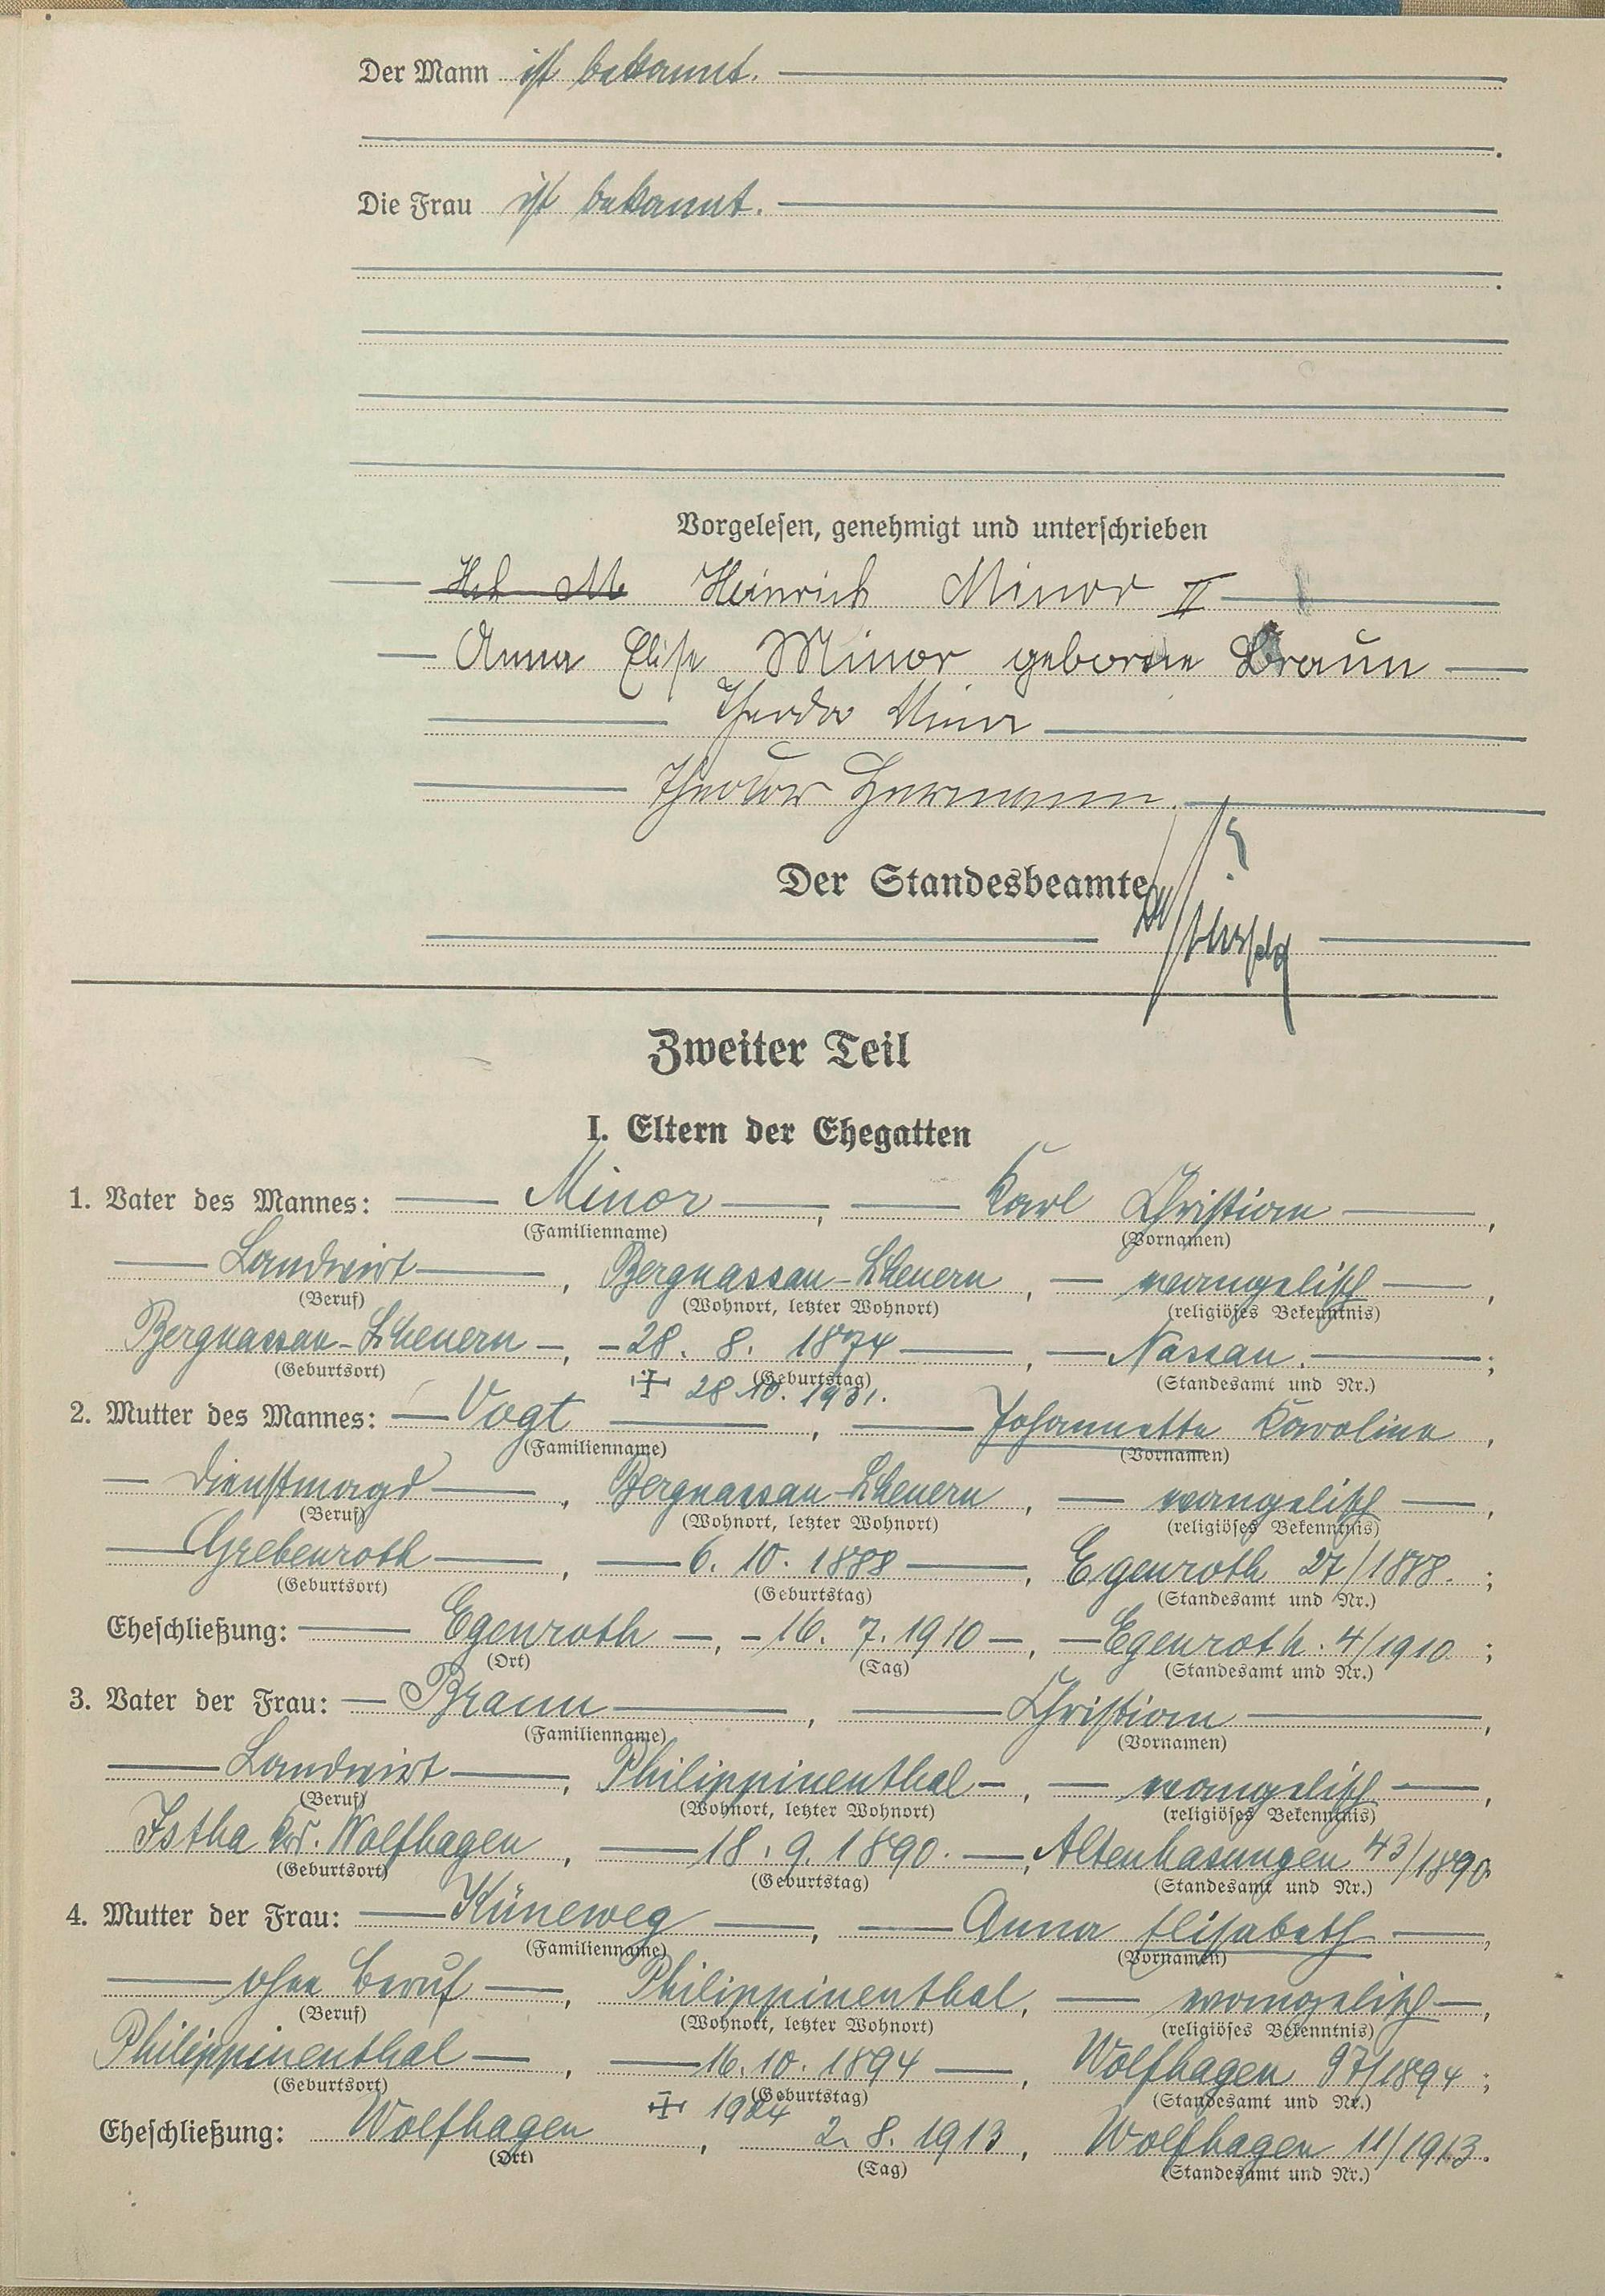 Der Mann ist bekannt.
Die Frau ist bekannt.
Vorgelesen, genehmigt und unterschrieben
Hch M Heinrich Minor II
Anna Elise Minor geborne Braun
Theodor Minor
Theodor Hermann.
Der Standesbeamte
Zweiter Teil
I. Eltern der Ehegatten
1. Vater des Mannes: Minor, Karl Christian,
(Familienname) (Vornamen)
Landwirt, Bergnassau-Scheuern, evangelisch,
(Beruf) (Wohnort, letzter Wohnort) (religiöses Bekenntnis)
Bergnassau-Scheuern, 28. 8. 1874, Nassau.;
(Geburtsort) (Geburtstag) (Standesamt und Nr.)
28.10.1931.
2. Mutter des Mannes: Vogt, Johannette Karoline,
(Familienname) (Vornamen)
Dienstmagd, Bergnassau-Scheuern, evangelisch,
(Beruf) (Wohnort, letzter Wohnort) (religiöses Bekenntnis)
Grebenroth, 6. 10. 1888, Egenroth 27/1888.;
(Geburtsort) (Geburtstag) (Standesamt und Nr.)
Eheschließung: Egenroth, 16. 7. 1910, Egenroth. 4/1910;
(Ort) (Tag) (Standesamt und Nr.)
3. Vater der Frau: Braun, Christian,
(Familienname) (Vornamen)
Landwirt, Philippinenthal, evangelisch,
(Beruf) (Wohnort, letzter Wohnort) (religiöses Bekenntnis)
Istha Krs. Wolfhagen, 18. 9. 1890., Altenhasungen 43/1890
(Geburtsort) (Geburtstag) (Standesamt und Nr.)
4. Mutter der Frau: Küneweg, Anna Elisabeth,
(Familienname) (Vornamen)
ohne Beruf, Philippinenthal, evangelisch,
(Beruf) (Wohnort, letzter Wohnort) (religiöses Bekenntnis)
Philippinenthal, 16. 10. 1894, Wolfhagen 97/1894;
(Geburtsort) (Geburtstag) (Standesamt und Nr.)
Eheschließung: Wolfhagen, 2. 8. 1913, Wolfhagen 11/1913.
(Ort) (Tag) (Standesamt und Nr.)